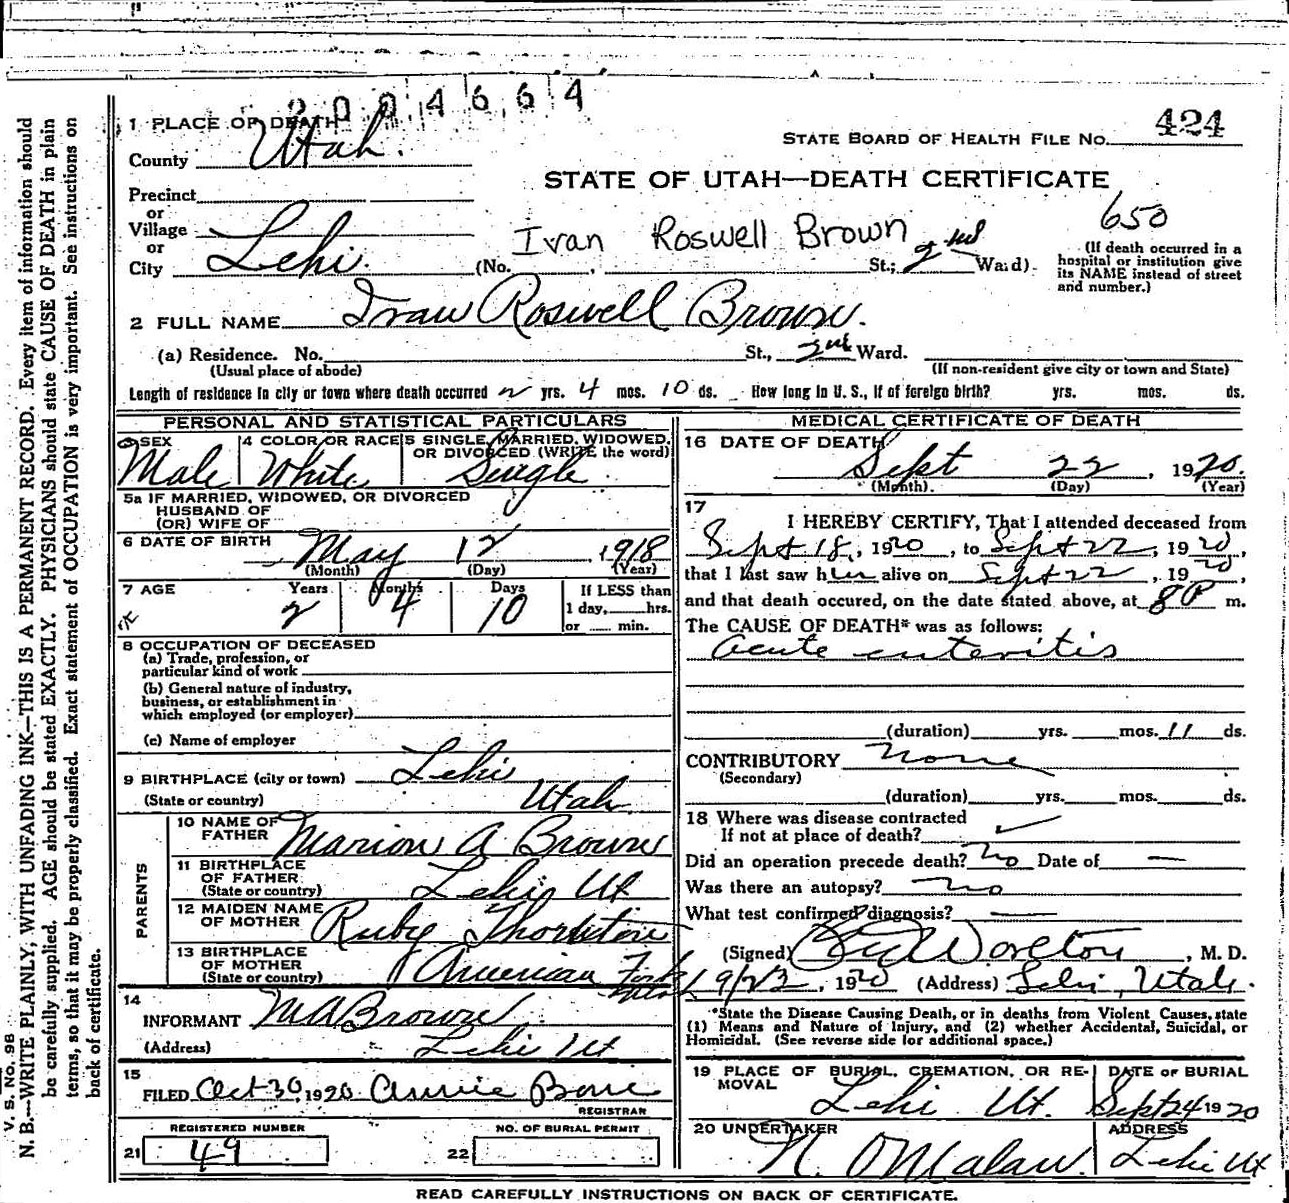 2004664
1 PLACE OF DEATH
County Utah.
STATE BOARD OF HEALTH FILE No. 424
STATE OF UTAH—DEATH CERTIFICATE
Precinct
or
Village
or
City Lehi.
Ivan Roswell Brown
650
(No. St.; 2nd Ward).
(If death occurred in a
hospital or institution give
its NAME instead of street
and number.)
2 FULL NAME Ivan Roswell Brown.
(a) Residence. No. St., 2nd Ward.
(Usual place of abode)
(If non-resident give city or town and State)
Length of residence in city or town where death occurred 2 yrs. 4 mos. 10 ds. How long in U. S., if of foreign birth? yrs. mos. ds.
PERSONAL AND STATISTICAL PARTICULARS
3 SEX
Male
4 COLOR OR RACE
White
5 SINGLE, MARRIED, WIDOWED,
OR DIVORCED (WRITE the word)
Single
5a IF MARRIED, WIDOWED, OR DIVORCED
HUSBAND OF
(OR) WIFE OF
6 DATE OF BIRTH May 12 1918
(Month) (Day) (Year)
7 AGE Years Months Days If LESS than
2 4 10 1 day, hrs.
or min.
8 OCCUPATION OF DECEASED
(a) Trade, profession, or
particular kind of work
(b) General nature of industry,
business, or establishment in
which employed (or employer)
(c) Name of employer
9 BIRTHPLACE (city or town) Lehi
(State or country) Utah
PARENTS
10 NAME OF
FATHER Marion A Brown
11 BIRTHPLACE
OF FATHER
(State or country) Lehi, Ut
12 MAIDEN NAME
OF MOTHER Ruby Thornton
13 BIRTHPLACE
OF MOTHER
(State or country) American Fork
Utah
14
INFORMANT M A Brown
(Address) Lehi Ut
15
FILED Oct 30, 1920 Annie Bone
REGISTRAR
REGISTERED NUMBER
21 49
NO. OF BURIAL PERMIT
22
MEDICAL CERTIFICATE OF DEATH
16 DATE OF DEATH
Sept 22, 1920.
(Month). (Day) (Year)
17
I HEREBY CERTIFY, That I attended deceased from
Sept 18, 1920, to Sept 22, 1920,
that I last saw him alive on Sept 22, 1920,
and that death occured, on the date stated above, at 8 P m.
The CAUSE OF DEATH* was as follows:
acute enteritis
(duration) yrs. mos. 11 ds.
CONTRIBUTORY None
(Secondary)
(duration) yrs. mos. ds.
18 Where was disease contracted
If not at place of death? ✓
Did an operation precede death? No Date of —
Was there an autopsy? No
What test confirmed diagnosis? —
(Signed) Worlton, M. D.
9/23, 1920 (Address) Lehi, Utah.
*State the Disease Causing Death, or in deaths from Violent Causes, state
(1) Means and Nature of Injury, and (2) whether Accidental, Suicidal, or
Homicidal. (See reverse side for additional space.)
19 PLACE OF BURIAL, CREMATION, OR RE-
MOVAL
Lehi Ut.
DATE OF BURIAL
Sept 24 1920
20 UNDERTAKER
N. O Malan.
ADDRESS
Lehi Ut
READ CAREFULLY INSTRUCTIONS ON BACK OF CERTIFICATE.
V. S. No. 9B
N. B.—WRITE PLAINLY, WITH UNFADING INK—THIS IS A PERMANENT RECORD. Every item of information should
be carefully supplied. AGE should be stated EXACTLY. PHYSICIANS should state CAUSE OF DEATH in plain
terms, so that it may be properly classified. Exact statement of OCCUPATION is very important. See instructions on
back of certificate.